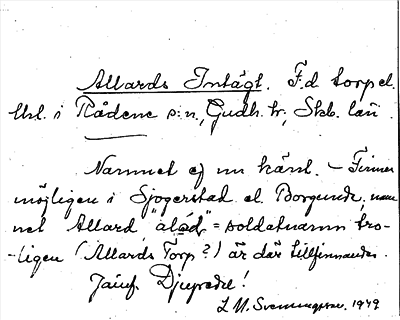 Allards Intägt. F.d. torp el.
lhl. i Rådene s:n., Gudh. hr., Skb. län.
Namnet ej nu känt. – Finnes
möjligen i Sjogerstad el. Borgunda, nam-
net Allard "alad" = soldatnamn tro-
-ligen (Allards Torp?) är där tillfinnandes.
Jämf. Djupadal!
1949